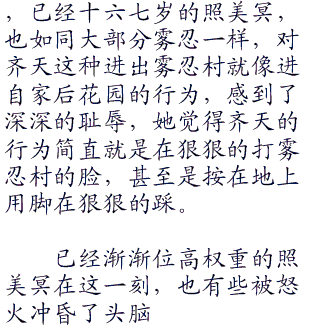 ，已经十六七岁的照美冥，
也如同大部分雾忍一样，对
齐天这种进出雾忍村就像进
自家后花园的行为，感到了
深深的耻辱，她觉得齐天的
行为简直就是在狠狠的打雾
忍村的脸，甚至是按在地上
用脚在狠狠的踩。
已经渐渐位高权重的照
美冥在这一刻，也有些被怒
火冲昏了头脑